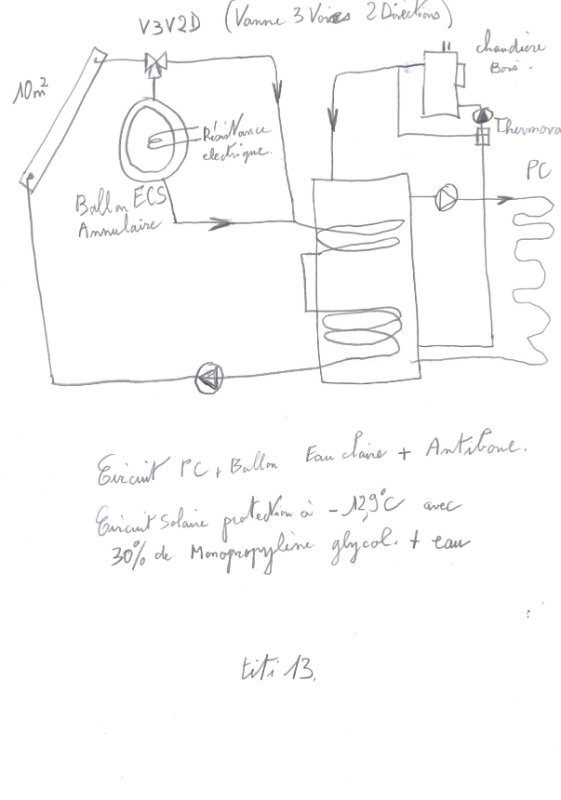 V3V2D (Vanne 3 Voies 2 Directions)
10m²
chaudière
Bois.
Thermova
Résistance
electrique.
PC
Ballon ECS
Annulaire
Circuit PC + Ballon Eau claire + Antiboue.
Circuit Solaire protection à -12,9°C avec
30% de Monopropylène glycol. + eau
titi 13.